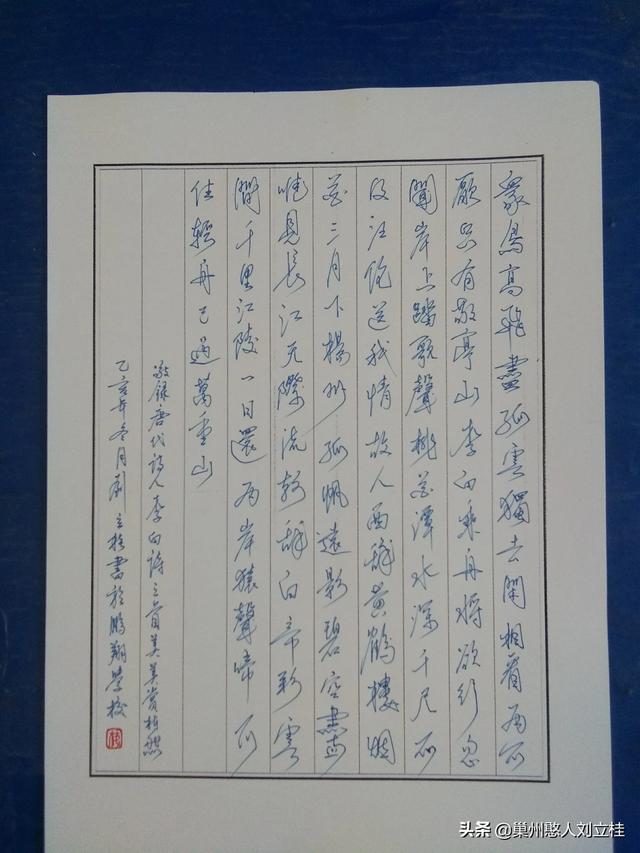 眾鳥高飛盡孤雲獨去閑相看兩不
厭只有敬亭山李白乘舟將欲行忽
聞岸上踏歌聲桃花潭水深千尺不
及汪倫送我情故人西辭黃鶴樓烟
花三月下揚州孤帆遠影碧空盡
唯見長江天際流朝辭白帝彩雲
間千里江陵一日還兩岸猿聲啼不
住輕舟已過萬重山
敬錄唐代詩人李白詩
乙亥年冬月劉立桂書於鵬翔學校
头条 @巢州憨人刘立桂